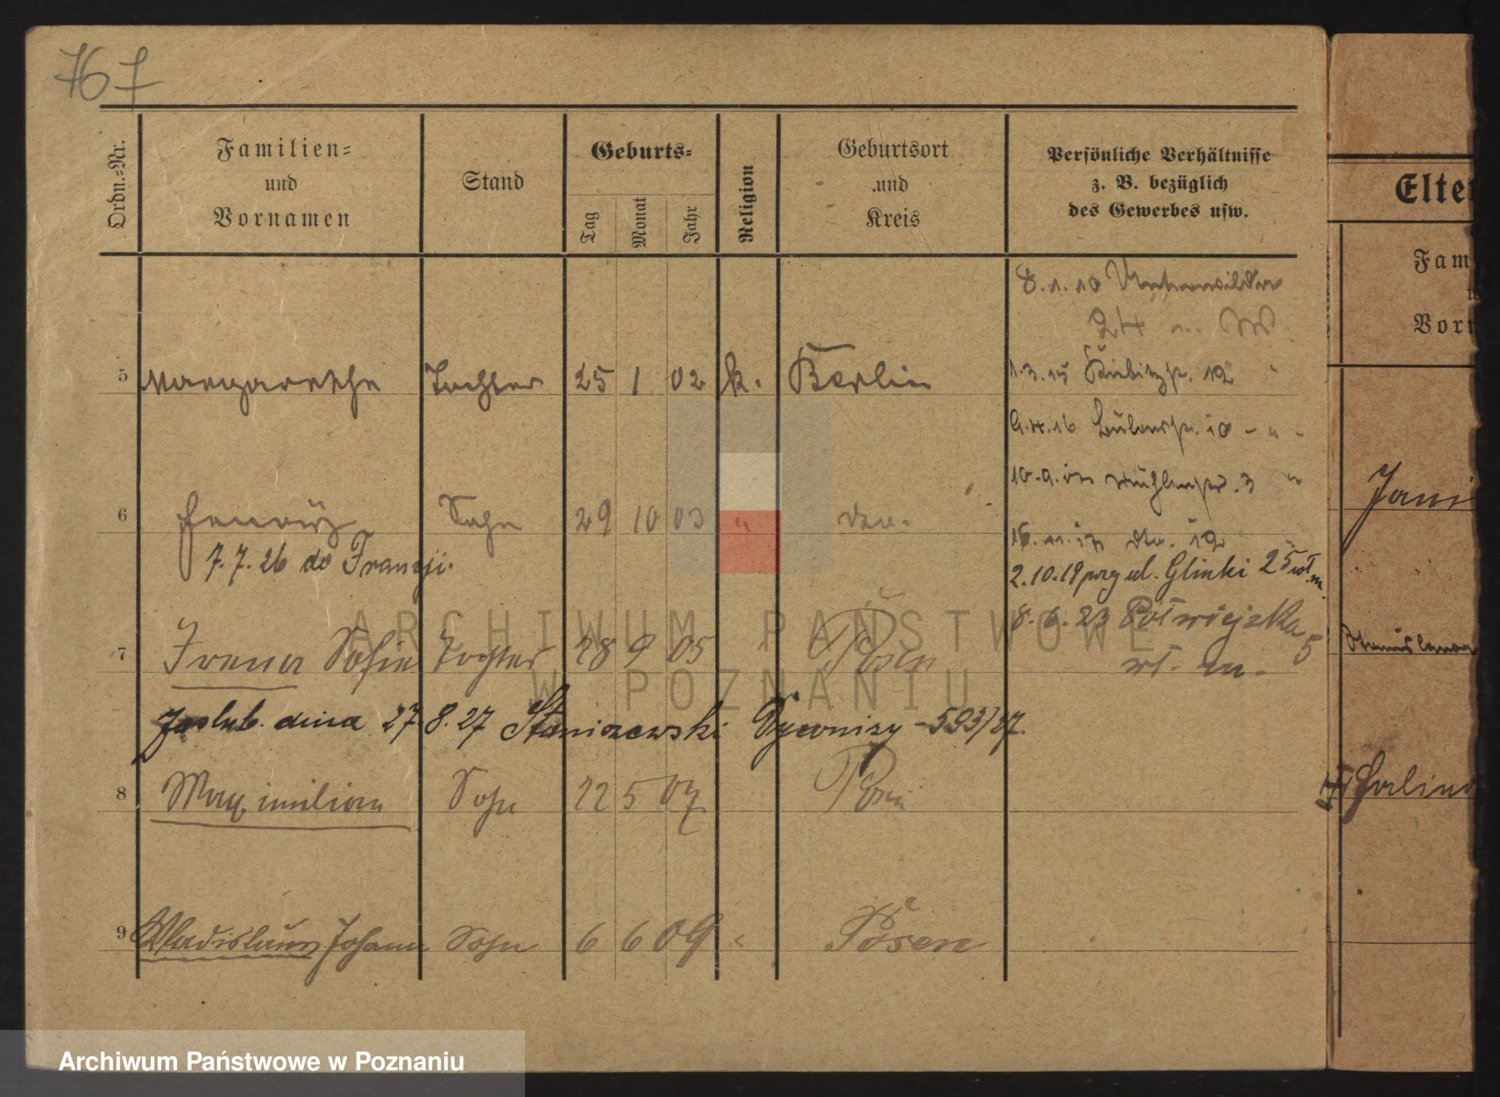 767
Ordn.-Nr.
Familien=
und
Vornamen
Stand
Geburts=
Tag
Monat
Jahr
Religion
Geburtsort
und
Kreis
Persönliche Verhältnisse
z. B. bezüglich
des Gewerbes usw.
8.1.10 Unterwilda
24 W
5 Margarethe Tochter 25 1 02 k. Berlin
1.3.15 12 "
9.4.16 Bülowstr. 10 - " -
10.9. Mühlenstr. 3 "
6 Sohn 29 10 03 "
7.7.26 do Francji.
16.11.17 12
2.10.19 przy ul. Glinki 25 wł. m.
8.6.23 Półwiejska 5
wł. m.
7 Irena Sofie Tochter 28 9 05 Posen
zaślub. dnia 27.8.27 Staniszewski 593/27.
8 Maximilian Sohn 12 5 07 Posen
9 Wladislaus Johann Sohn 6 6 09 " Posen
Elte
Fam
u
Vorn
Jani
Stanislawa
Halina
ARCHIWUM PAŃSTWOWE
W POZNANIU
Archiwum Państwowe w Poznaniu